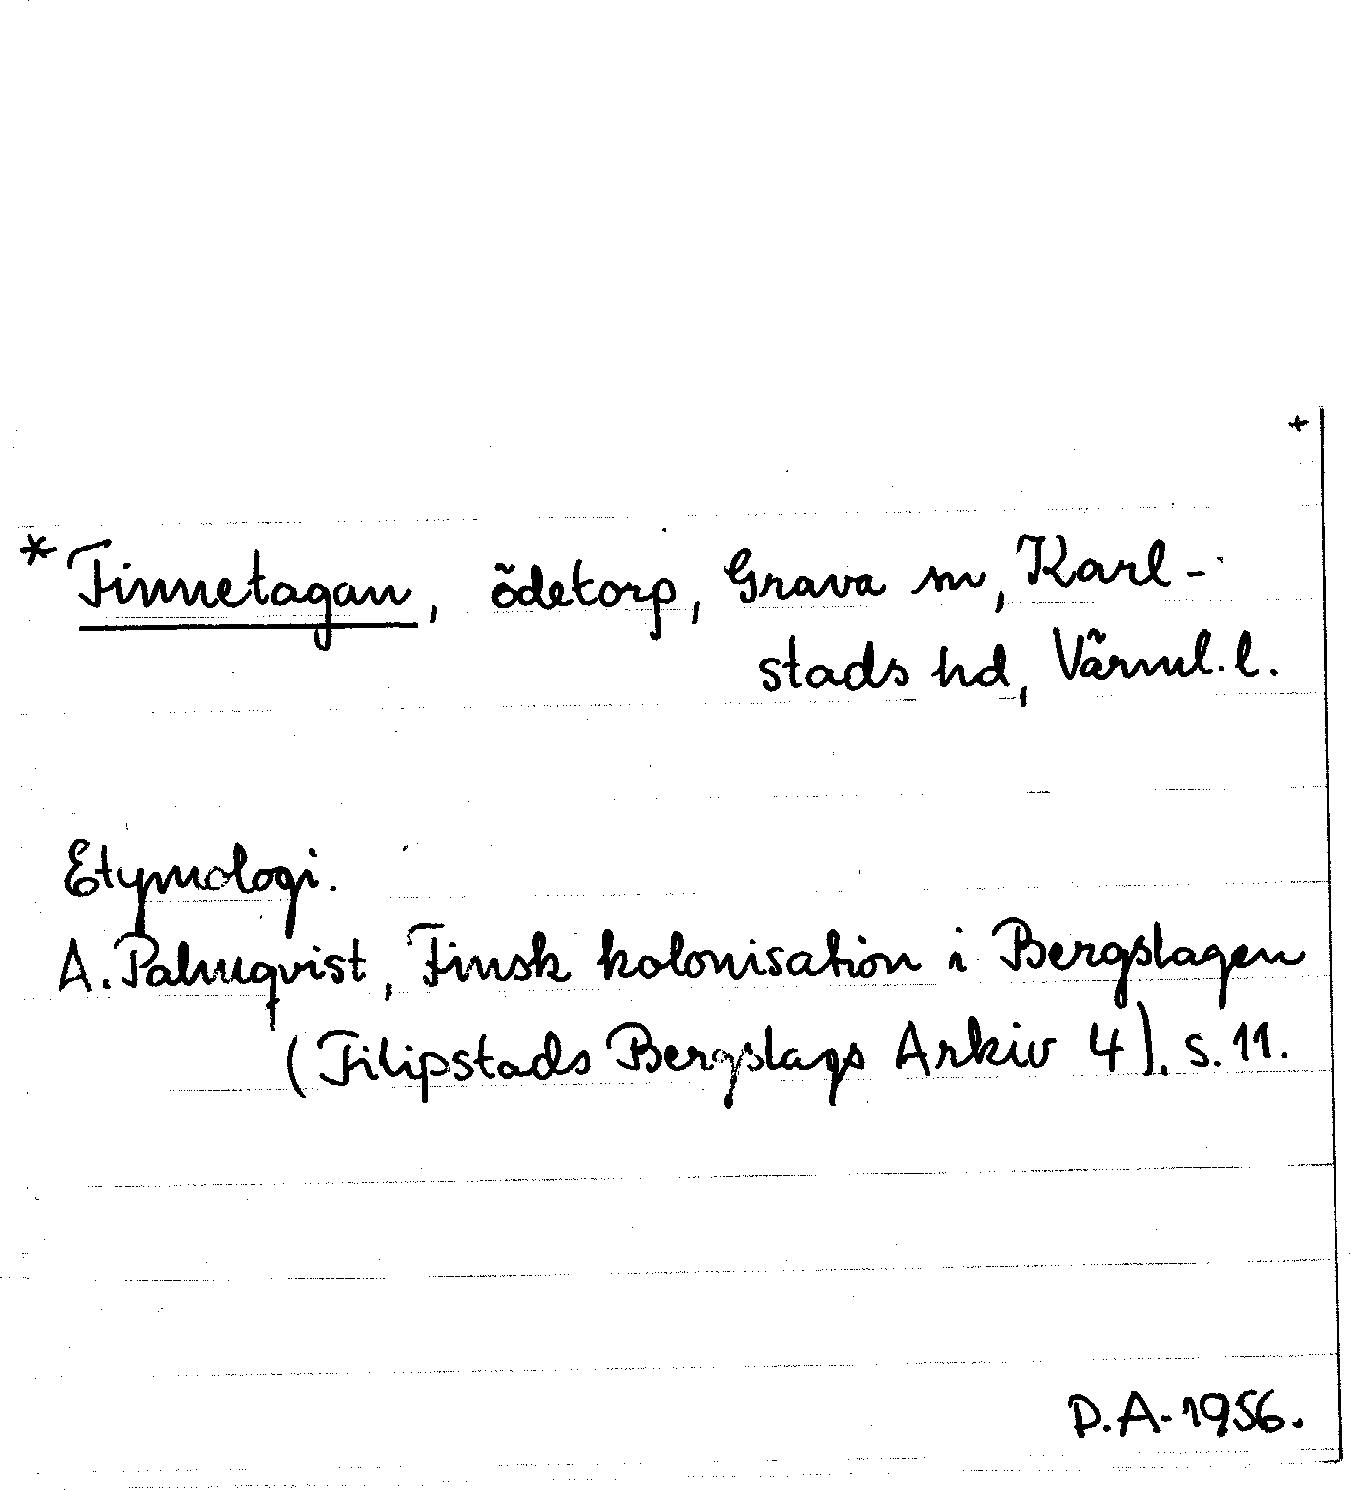 +
* Finnetagan, ödetorp, Grava sn, Karl-
stads hd, Värml. l.
Etymologi.
A. Palmqvist, Finsk kolonisation i Bergslagen
(Filipstads Bergslags Arkiv 4). s. 11.
D.A. 1956.